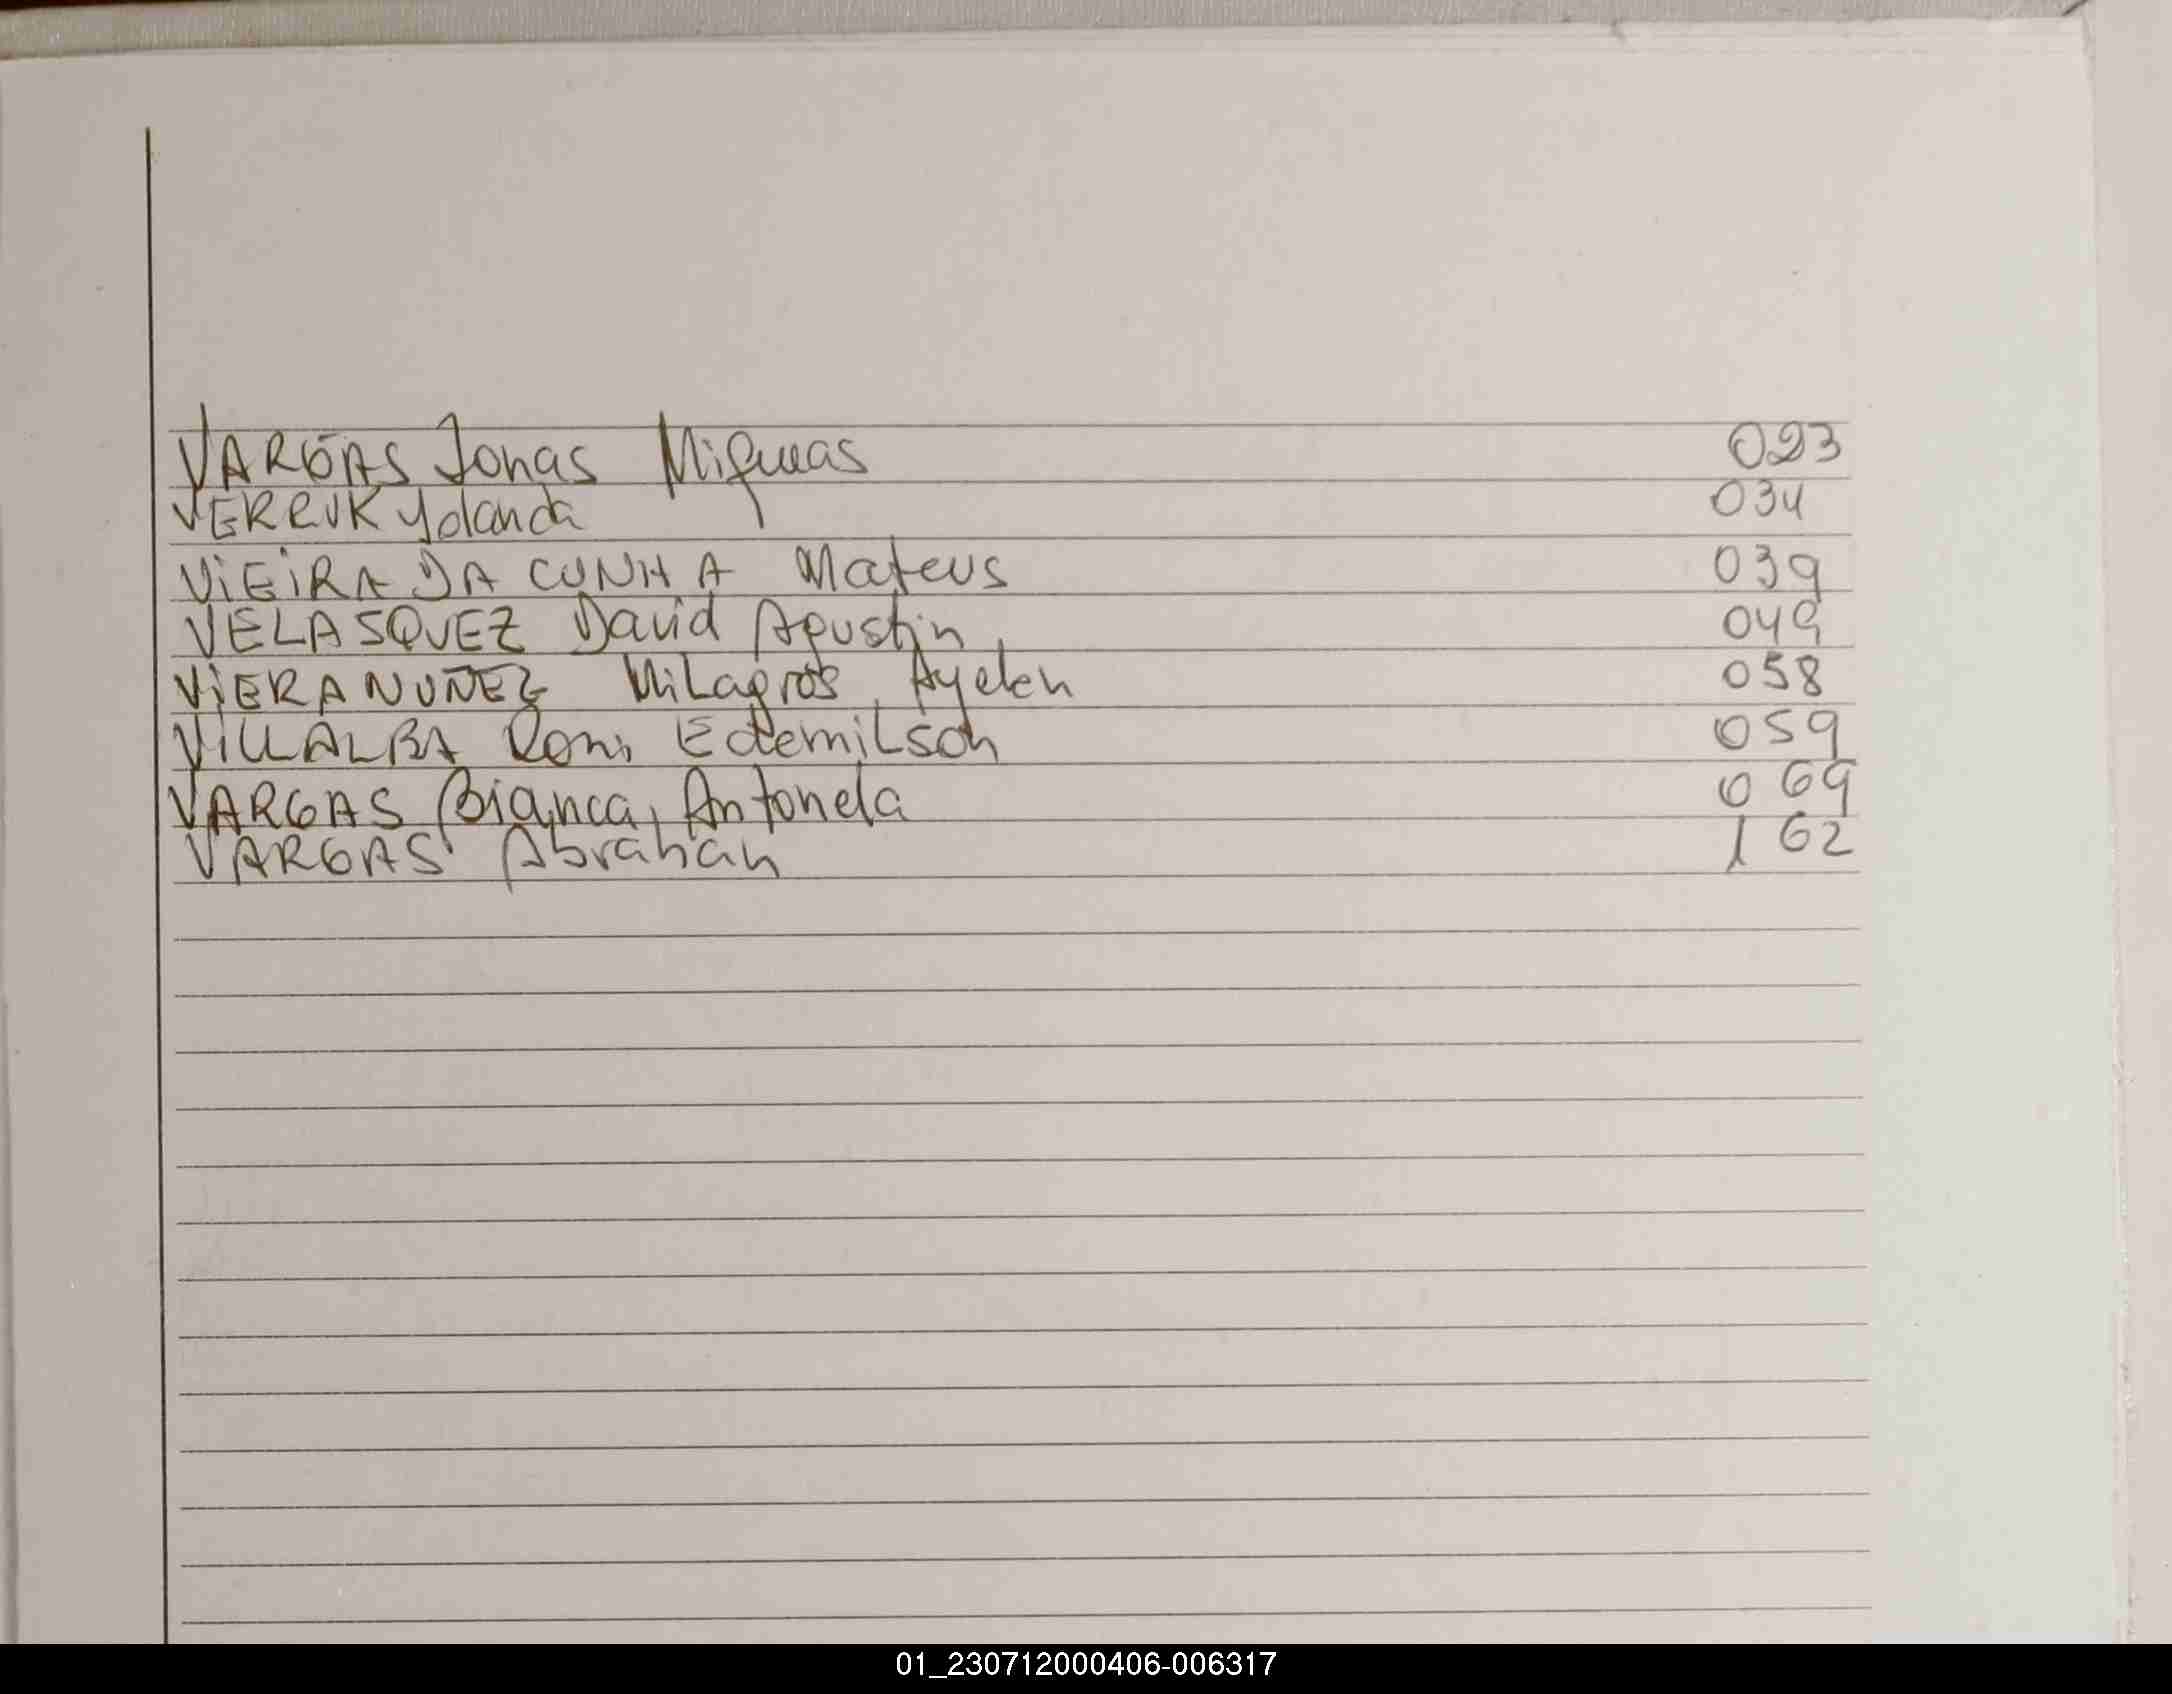 VARGAS Jonas Miqueas 023
VERRUK Yolanda 034
ViEiRA DA CUNHA Mateus 039
VELASQUEZ David Agustin 049
ViERA NUÑEZ Milagros Ayelen 058
ViLLALBA Roni Edemilson 059
VARGAS Bianca Antonela 069
VARGAS Abrahan 162
01_230712000406-006317